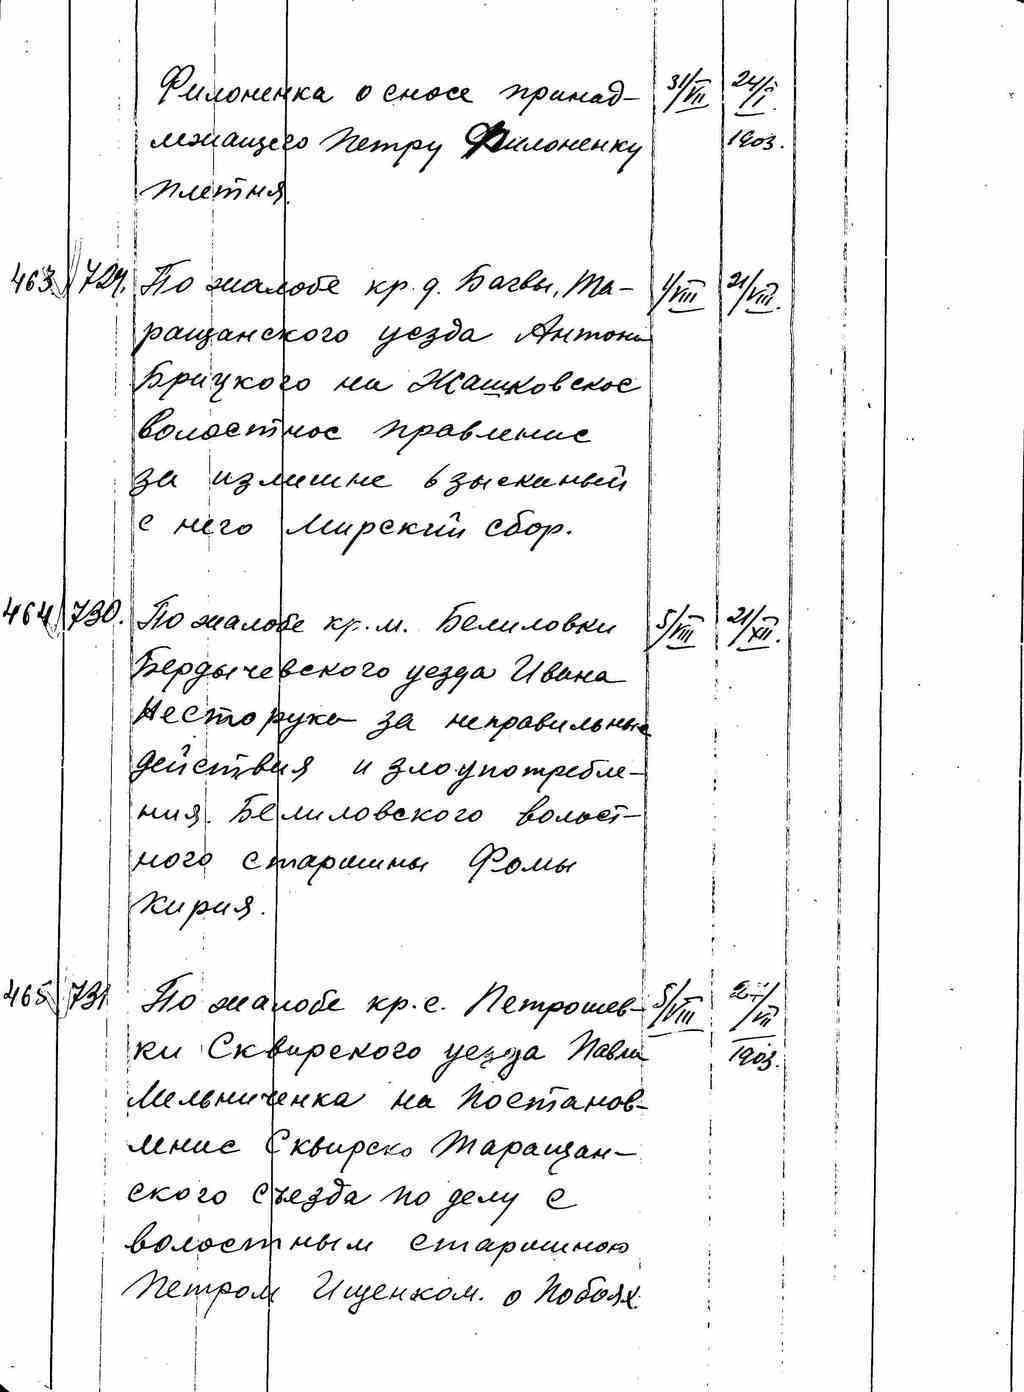 Филоненка о сносе принад- 31/VII 24/I
лежащего Петру Филоненку 1903.
плетня.
463. 729. По жалобе кр. д. Багвы, Та- 1/VIII 21/VIII.
ращанского уезда Антона
Брицкого на Жашковское
волостное правление
за излишне взысканый
с него мирский сбор.
464 730. По жалобе кр. м. Белиловки 5/VIII 21/XII.
Бердычевского уезда Ивана
Несторука за неправильные
действия и злоупотребле-
ния. Белиловского волост-
ного старшины Фомы
Кирия.
465 731 По жалобе кр. с. Петрошев- 5/VIII /VII
ки Сквирского уезда Павла 1903.
Мельниченка на постанов-
ление Сквирско Таращан-
ского съезда по делу с
волостным старшиною
Петром Ищенком. о побоях.